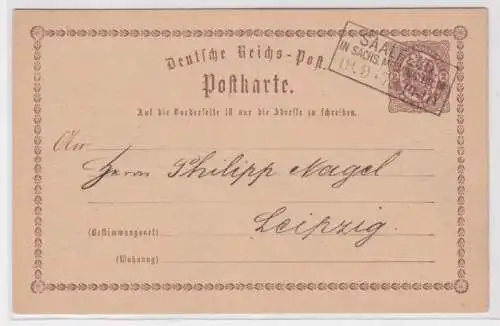 Deutsche Reichs-Post.
Postkarte.
SAALFELD
IN SACHS. MEIN
Auf die Vorderseite ist nur die Adresse zu schreiben.
An
Herrn Philipp Nagel
Leipzig.
(Bestimmungsort)
(Wohnung)